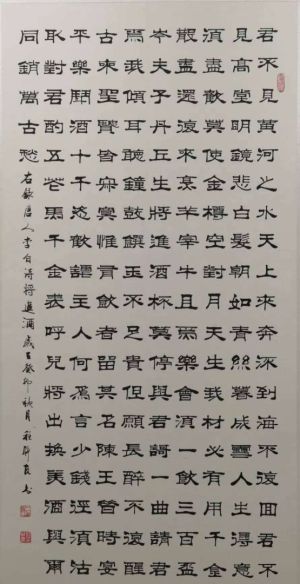 君不見黃河之水天上來奔流到海不復回君不
見高堂明鏡悲白髮朝如青絲暮成雪人生得意
須盡歡莫使金樽空對月天生我材必有用千金
散盡還復來烹羊宰牛且爲樂會須一飲三百盃
岑夫子丹丘生將進酒杯莫停與君謌一曲請君
爲我傾耳聽鐘鼓饌玉不足貴但願長醉不復醒
古來聖賢皆寂寞惟有飲者留其名陳王昔時宴
平樂鬭酒十千恣歡謔主人何爲言少錢徑須沽
取對君酌五花馬千金裘呼兒將出換美酒與爾
同銷萬古愁
右錄唐人李白詩將進酒歲在癸卯秋月書